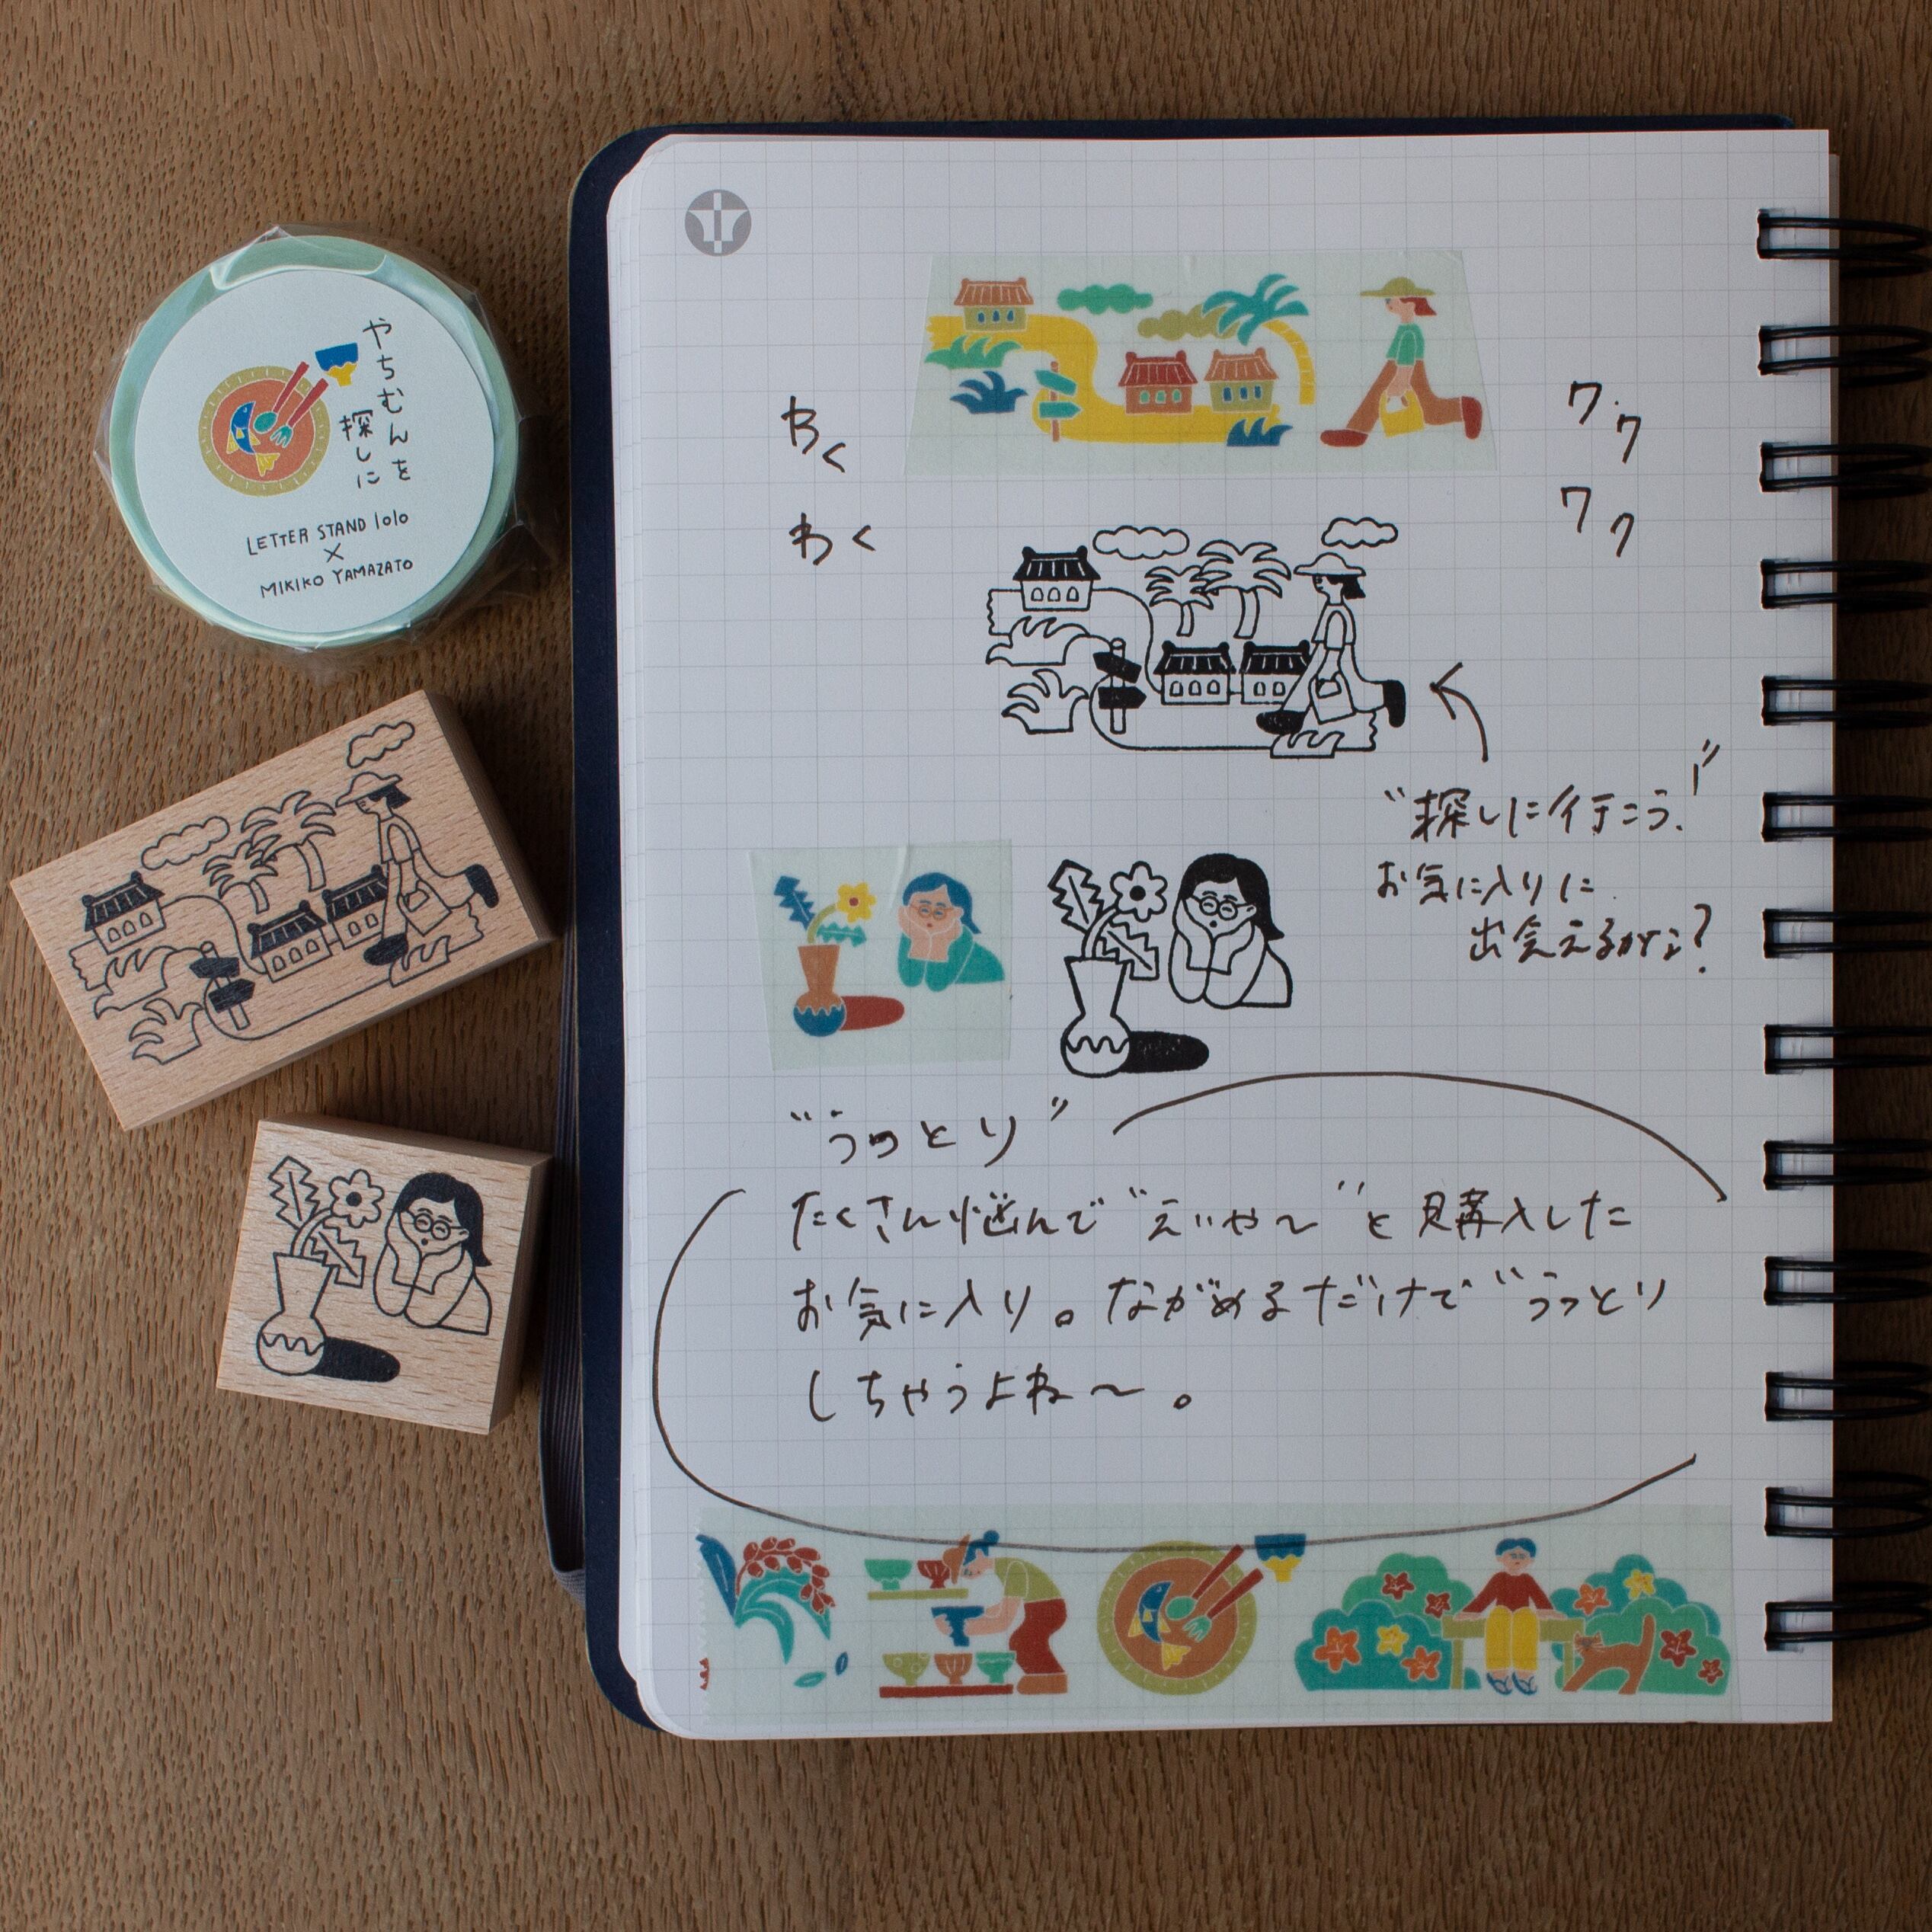 やちむんを
探しに
LETTER STAND lolo
×
MIKIKO YAMAZATO
わく
わく
ワク
ワク
"探しに行こう!"
お気に入りに
出会えるかな?
"うっとり"
たくさん悩んで"えいや〜"と購入した
お気に入り。ながめるだけで"うっとり
しちゃうよね〜。